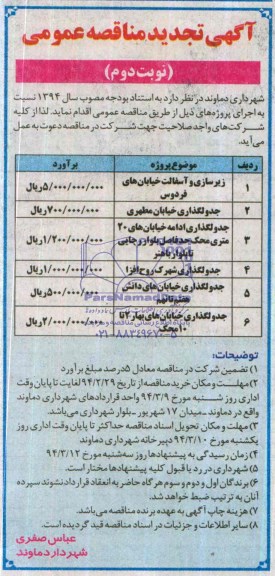 آگهی تجدید مناقصه عمومی
(نوبت دوم)
شهرداری دماوند در نظر دارد به استناد بودجه مصوب سال ۱۳۹۴ نسبت
به اجرای پروژه‌های ذیل از طریق مناقصه عمومی اقدام نماید. لذا از کلیه
شرکت‌های واجد صلاحیت جهت شرکت در مناقصه دعوت به عمل
می‌آید.
ردیف موضوع پروژه برآورد
۱ زیرسازی و آسفالت خیابان‌های فردوس ۵/۰۰۰/۰۰۰/۰۰۰ریال
۲ جدولگذاری خیابان مطهری ۷۰۰/۰۰۰/۰۰۰ریال
۳ جدولگذاری ادامه خیابان‌های ۲۰
متری محک حدفاصل بلوار رجایی
تا بلوار باهنر ۱/۲۰۰/۰۰۰/۰۰۰ریال
۴ جدولگذاری شهرک روح افزا ۱/۰۰۰/۰۰۰/۰۰۰ریال
۵ جدولگذاری خیابان‌های دانش
هشتم تا نهم ۵۰۰/۰۰۰/۰۰۰ریال
۶ جدولگذاری خیابان‌های بهار ۴ تا
۱۰ محک ۲/۰۰۰/۰۰۰/۰۰۰ریال
ParsNamadData
۰۲۱-۸۸۳۴۹۶۷۰-۵
توضیحات:
۱) تضمین شرکت در مناقصه معادل ۵درصد مبلغ برآورد
۲) مهلت و مکان خرید مناقصه از تاریخ ۹۴/۲/۲۹ لغایت تا پایان وقت
اداری روز شنبه مورخ ۹۴/۳/۹ واحد قراردادهای شهرداری دماوند
واقع در دماوند ـ میدان ۱۷ شهریور ـ بلوار شهرداری می‌باشد.
۳) مهلت و مکان تحویل اسناد مناقصه حداکثر تا پایان وقت اداری روز
یکشنبه مورخ ۹۴/۳/۱۰ دبیرخانه شهرداری دماوند
۴) زمان رسیدگی به پیشنهادها روز سه‌شنبه مورخ ۹۴/۳/۱۲
۵) شهرداری در رد یا قبول کلیه پیشنهادها مختار است.
۶) برندگان اول و دوم و سوم هر گاه حاضر به انعقاد قرارداد نشوند سپرده
آنان به ترتیب ضبط خواهد شد.
۷) هزینه چاپ آگهی به عهده برنده مناقصه می‌باشد.
۸) سایر اطلاعات و جزئیات در اسناد مناقصه قید گردیده است.
عباس صفری
شهردار دماوند